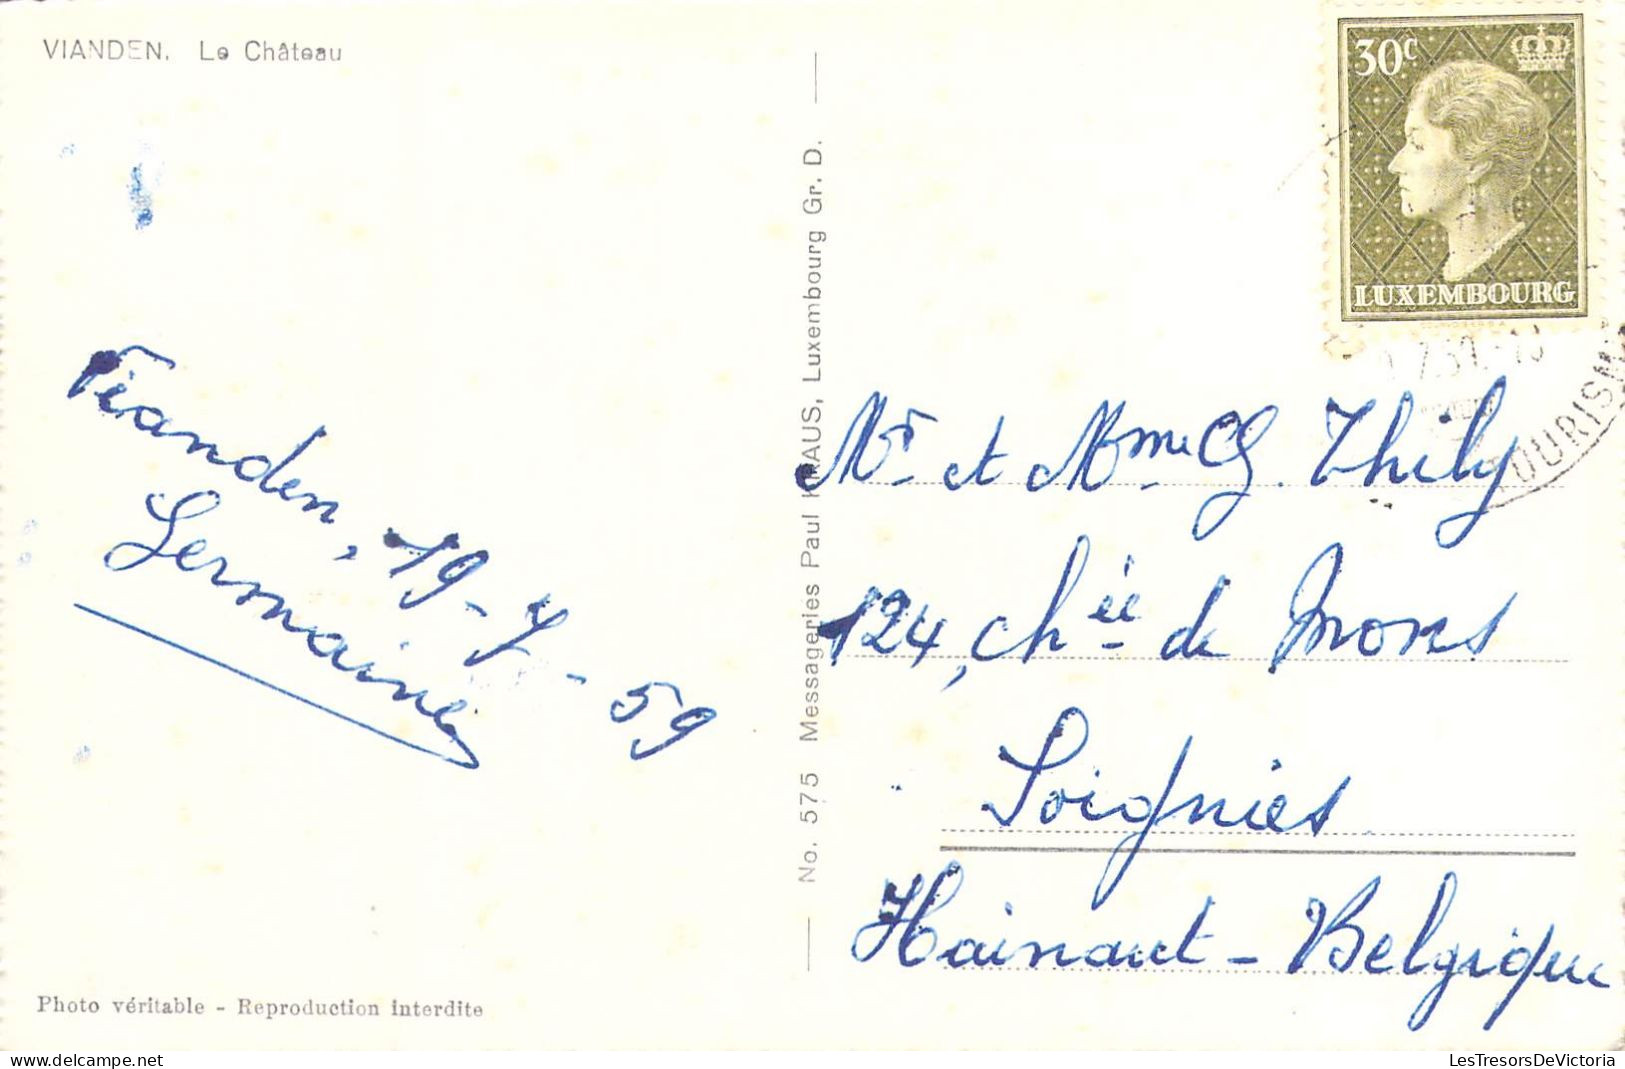 VIANDEN. Le Château
30c
LUXEMBOURG
TOURISM
Vianden, 19-7-59
Germaine
No. 575 Messageries Paul KRAUS, Luxembourg Gr. D.
Mr et Mme G. Thily
124, chée de Mons
Soignies
Hainaut - Belgique
Photo véritable - Reproduction interdite
LesTresorsDeVictoria